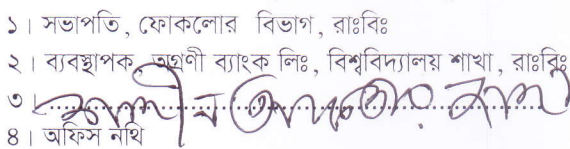 ১। সভাপতি, ফোকলোর বিভাগ, রাঃবিঃ
২। ব্যবস্থাপক, অগ্রণী ব্যাংক লিঃ, বিশ্ববিদ্যালয় শাখা, রাঃবিঃ
৩।
৪। অফিস নথি